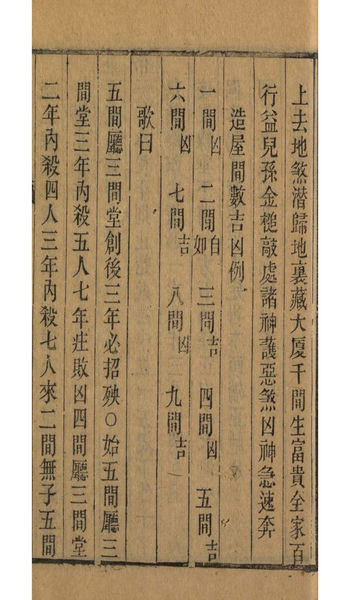 上去地煞潛歸地裏藏大厦千間生富貴全家百
行益兒孫金槌敲處諸神護惡煞凶神急速奔
造屋間數吉凶例
一間凶 二間自如 三間吉 四間凶 五間吉
六間凶 七間吉 八間凶 九間吉
歌曰
五間廳三間堂創後三年必招殃○始五間廳三
間堂三年內殺五人七年庄敗凶四間廳三間堂
二年內殺四人三年內殺七人來二間無子五間